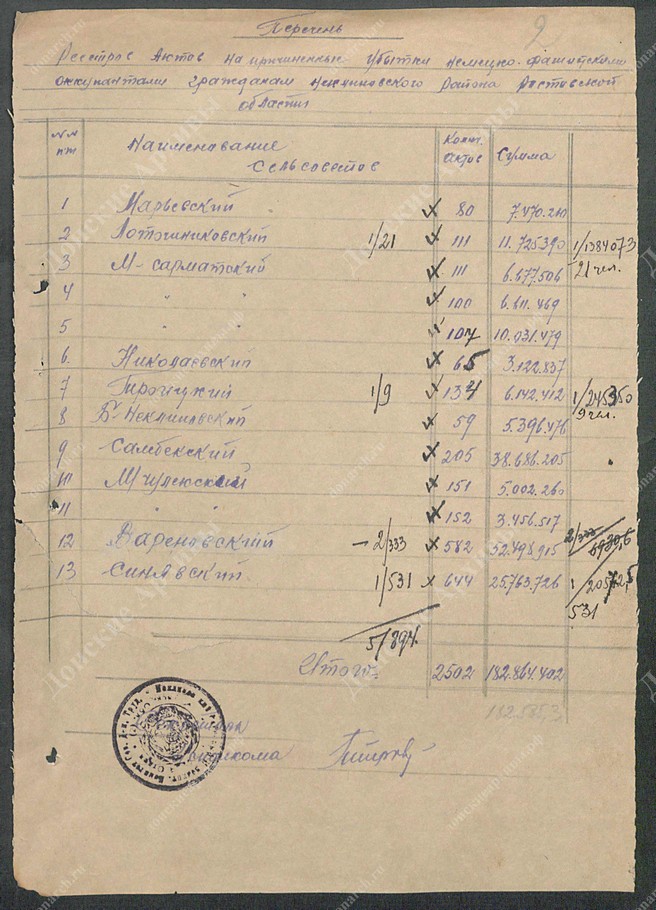 Перечень
2
Реестров Актов на причиненные убытки немецко-фашистскими
оккупантами гражданам Неклиновского Района Ростовской
области
№№ п/п Наименование сельсоветов Колич. актов Сумма
1 Марьевский 80 7.470.210
2 Лотошниковский 1/21 111 11.725390 1/1384073
3 М-сарматский 111 6.677.506 21 чел.
4 " " 100 6.811.469
5 " " 107 10.031.479
6. Николаевский 65 3.122.837
7 Троицкий 1/9 134 6.142.412 1/245350
8 Б-Неклиновский 59 5.396.476 9 чел.
9 Самбекский 205 38.686.205
10 Мчулекский 151 5.002.260
11 " " 152 3.456.517
12 Вареновский - 2/333 582 52.498,915 2/333
13 Синявский 1/531 644 25.763.726 1
531
5/894
Итого: 2502 182.864.402
182.585,3